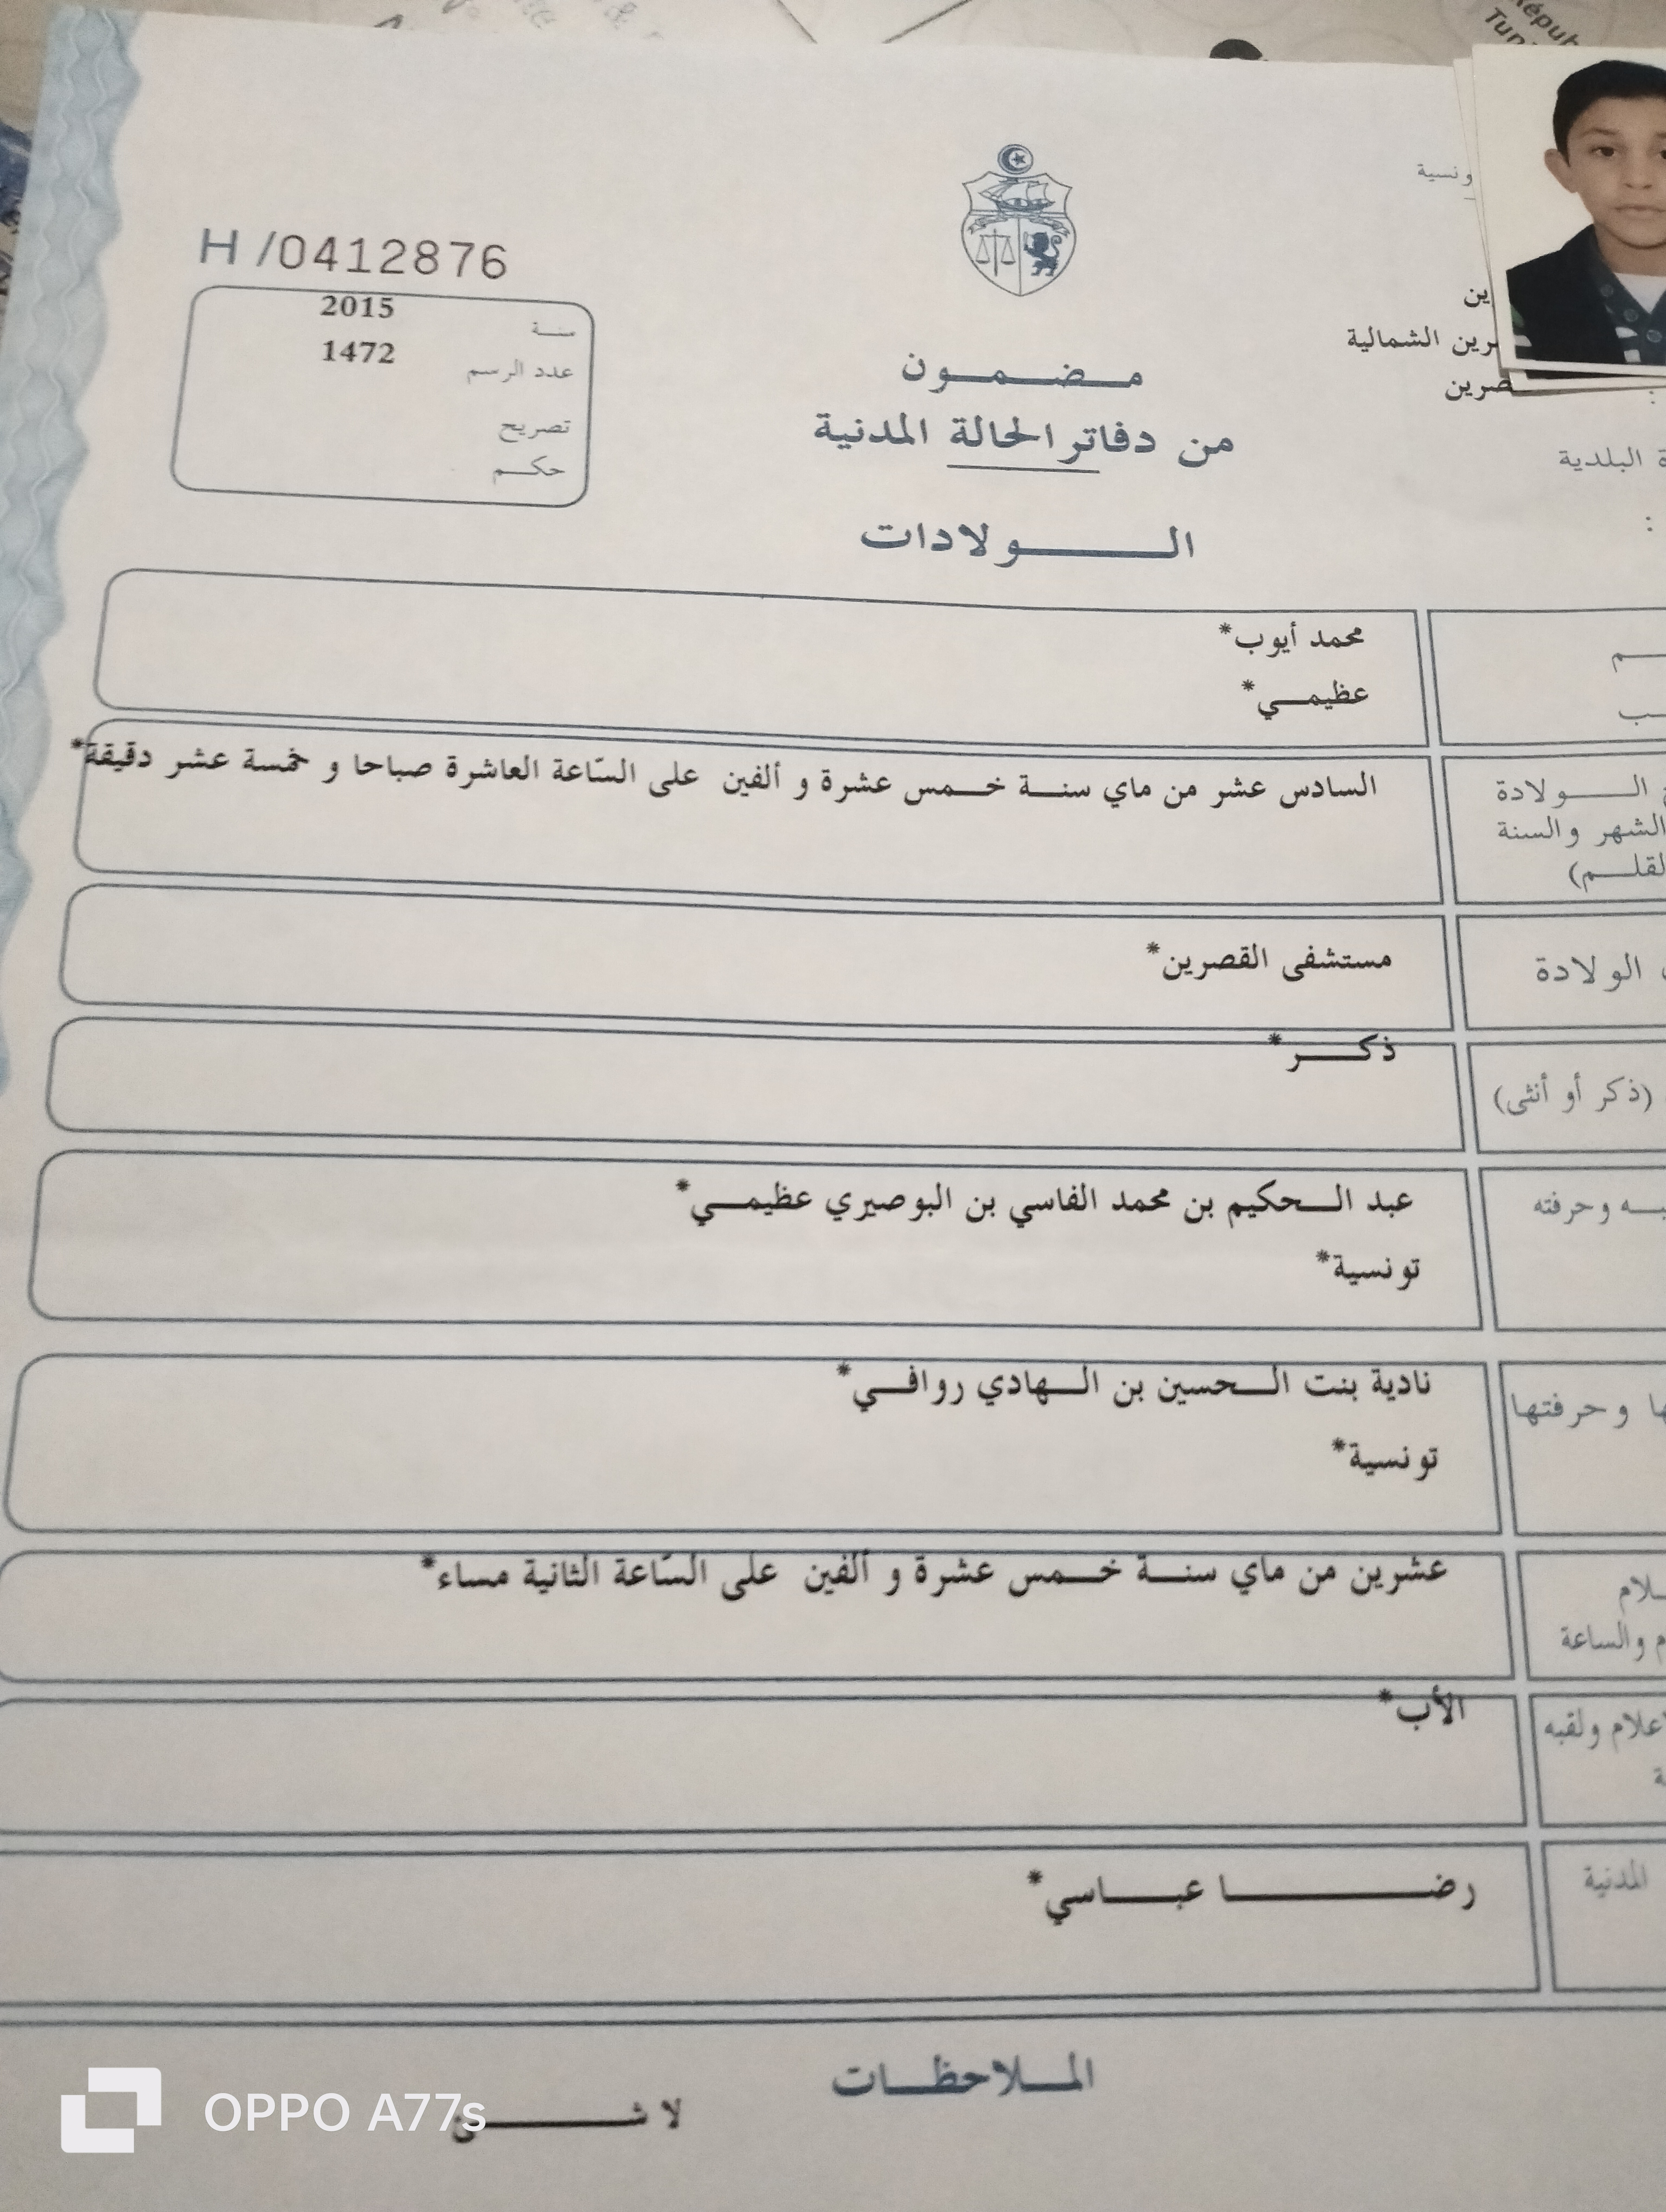 Répub
Tun
ونسية
H /0412876
2015 سنة
1472 عدد الرسم
تصريح
حكم
ين
رين الشمالية
صرين
مضمون
من دفاتر الحالة المدنية
ة البلدية
الولادات
محمد أيوب*
عظيمي*
السادس عشر من ماي سنة خمس عشرة و ألفين على السّاعة العاشرة صباحا و خمسة عشر دقيقة*
الولادة
الشهر والسنة
لقلم)
مستشفى القصرين*
الولادة
ذكر*
(ذكر أو أنثى)
عبد الحكيم بن محمد الفاسي بن البوصيري عظيمي*
به وحرفته
تونسية*
نادية بنت الحسين بن الهادي روافي*
ها وحرفتها
تونسية*
عشرين من ماي سنة خمس عشرة و ألفين على السّاعة الثانية مساء*
لام
م والساعة
الأب*
لاعلام ولقبه
ة
رضا عباسي*
المدنية
الملاحظات
لا شئ
OPPO A77s